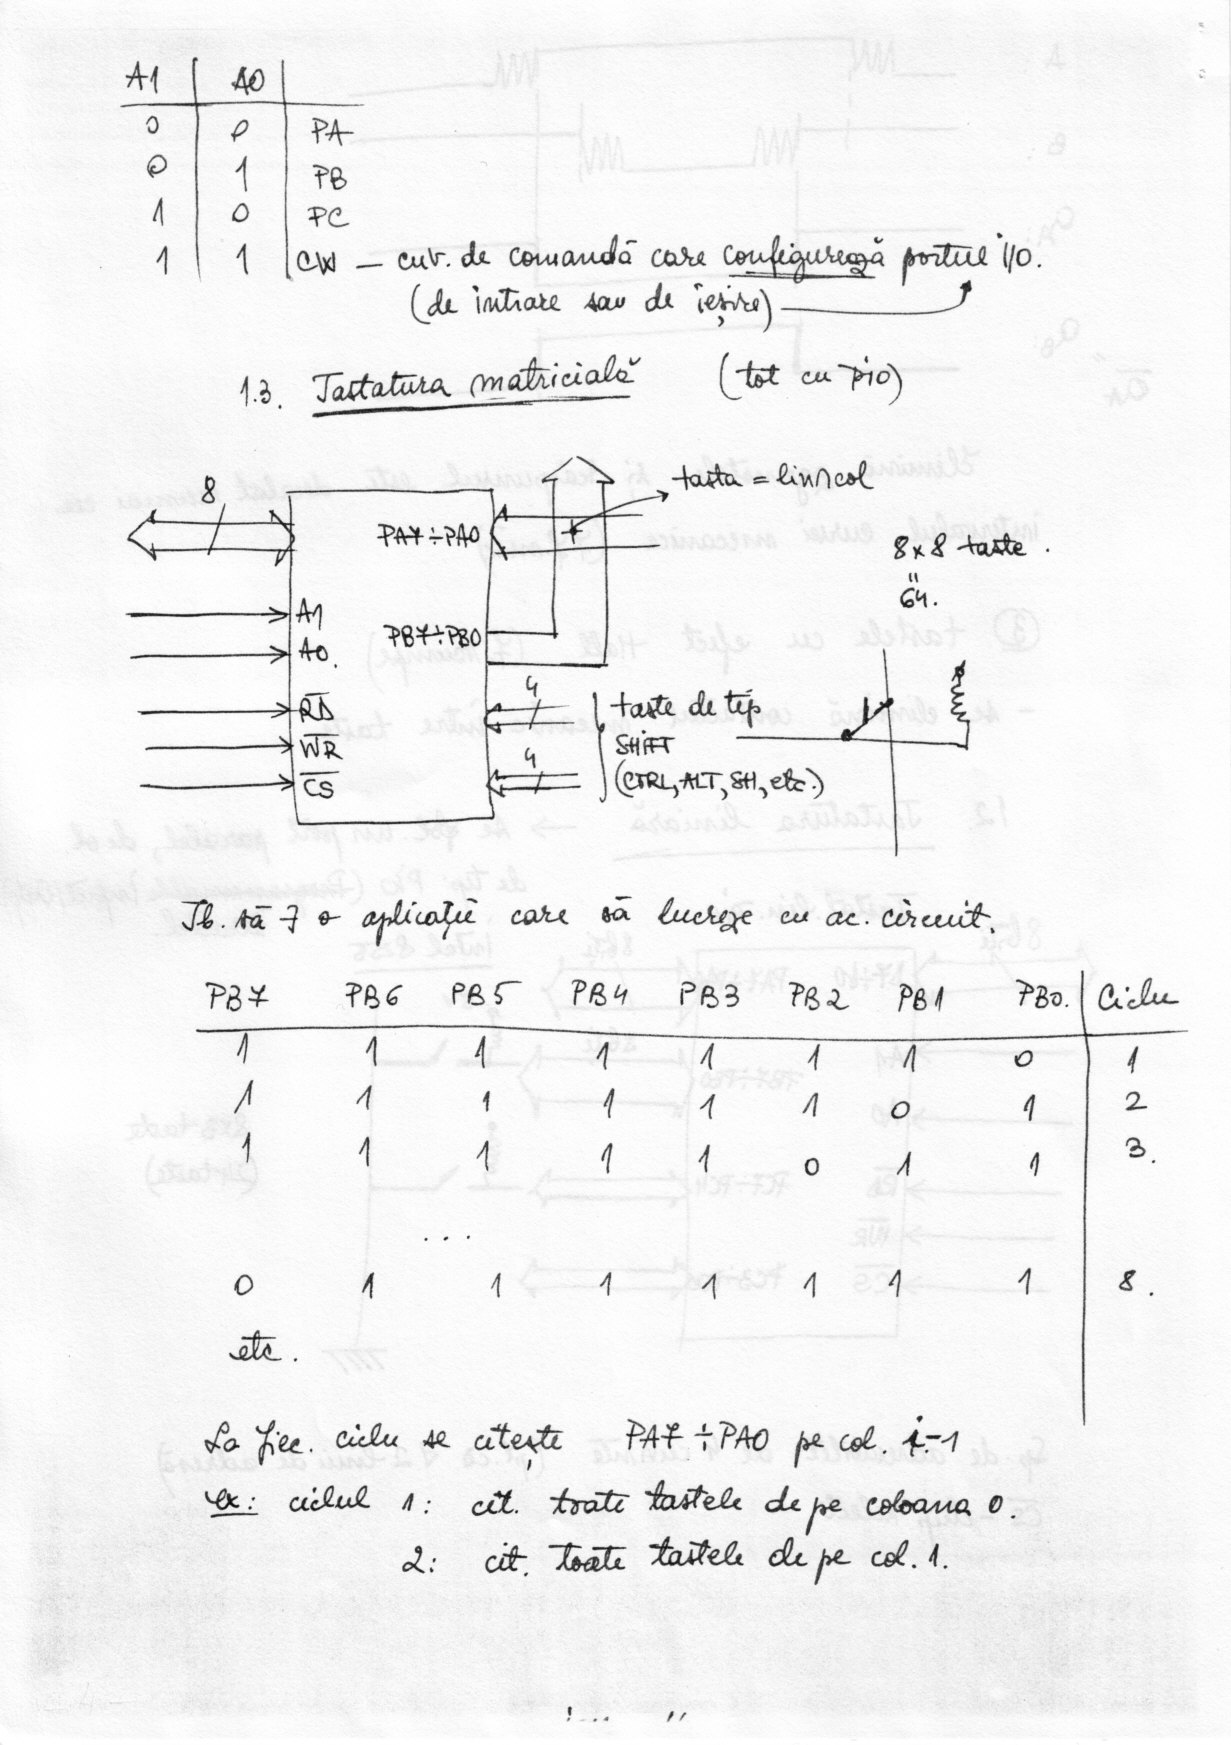 A1 A0
0 0 PA
0 1 PB
1 0 PC
1 1 CW — cuv. de comandă care configurează portul i/o.
(de intrare sau de ieșire)
1.3. Tastatura matricială (tot cu pio)
8
PA7÷PA0
tasta = lin∩col
8x8 taste.
"
64.
A1
PB7÷PB0
A0.
RD
4
taste de tip
WR
SHIFT
CS
4
(CTRL, ALT, SH, etc.)
Tb. să ∃ o aplicație care să lucreze cu ac. circuit.
PB7 PB6 PB5 PB4 PB3 PB2 PB1 PB0. Ciclu
1 1 1 1 1 1 1 0 1
1 1 1 1 1 1 0 1 2
1 1 1 1 1 0 1 1 3.
...
0 1 1 1 1 1 1 1 8.
etc.
La fiec. ciclu se citește PA7÷PA0 pe col. i-1
ex: ciclul 1: cit. toate tastele de pe coloana 0.
2: cit. toate tastele de pe col. 1.